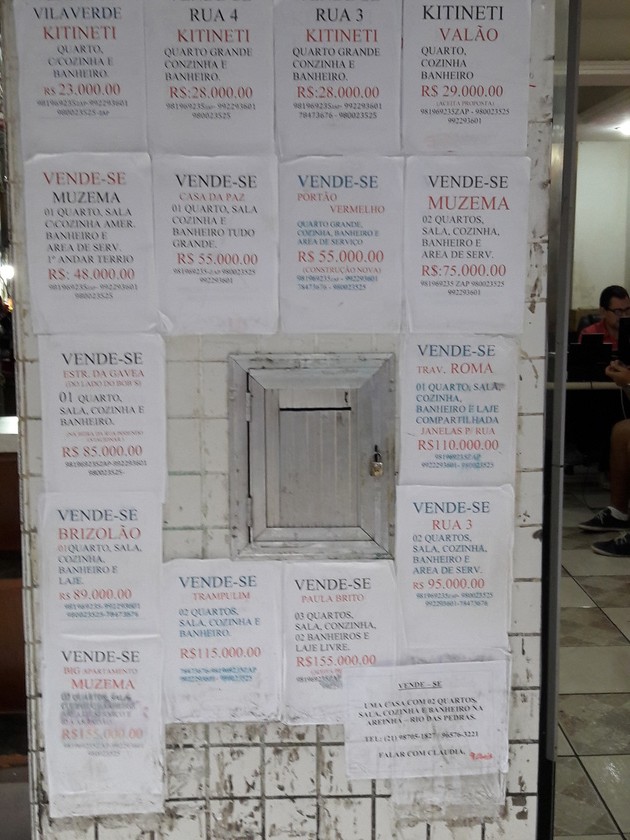 VILAVERDE
KITINETI
QUARTO,
C/COZINHA E
BANHEIRO.
R$ 23.000.00
981969235ZAP-992293601
980023525
RUA 4
KITINETI
QUARTO GRANDE
CONZINHA E
BANHEIRO.
R$:28.000.00
981969235ZAP-992293601
980023525
RUA 3
KITINETI
QUARTO GRANDE
CONZINHA E
BANHEIRO.
R$:28.000.00
981969235ZAP-992293601
78473676 - 980023525
KITINETI
VALÃO
QUARTO,
COZINHA
BANHEIRO
R$ 29.000.00
(ACEITA PROPOSTA)
981969235ZAP - 980023525
992293601
VENDE-SE
MUZEMA
01 QUARTO, SALA
C/COZINHA AMER.
BANHEIRO E
AREA DE SERV.
1º ANDAR TERRIO
R$: 48.000.00
981969235ZAP-992293601
980023525
VENDE-SE
CASA DA PAZ
01 QUARTO, SALA
COZINHA E
BANHEIRO TUDO
GRANDE.
R$ 55.000.00
981969235-ZAP-980023525
992293601
VENDE-SE
PORTÃO
VERMELHO
QUARTO GRANDE,
COZINHA, BANHEIRO E
AREA DE SERVICO
R$ 55.000.00
(CONSTRUÇÃO NOVA)
981969235ZAP - 992293601
78473676 - 980023525
VENDE-SE
MUZEMA
02 QUARTOS,
SALA, COZINHA,
BANHEIRO E
AREA DE SERV.
R$:75,000.00
981969235 ZAP 980023525
992293601
VENDE-SE
ESTR. DA GAVEA
(DO LADO DO BOB'S)
01 QUARTO,
SALA, COZINHA E
BANHEIRO.
R$ 85.000.00
981969235ZAP-992293601
980023525-
VENDE-SE
TRAV. ROMA
01 QUARTO, SALA,
COZINHA,
BANHEIRO E LAJE
COMPARTILHADA
JANELAS P/ RUA
R$110.000.00
981969235ZAP
992293601- 980023525
VENDE-SE
BRIZOLÃO
01QUARTO, SALA,
COZINHA,
BANHEIRO E
LAJE.
R$ 89.000.00
981969235-992293601
980023525-78473676
VENDE-SE
RUA 3
02 QUARTOS,
SALA, COZINHA,
BANHEIRO E
AREA DE SERV.
R$ 95.000.00
981969235ZAP - 980023525
992293601-78473676
VENDE-SE
TRAMPULIM
02 QUARTOS,
SALA, COZINHA E
BANHEIRO.
R$115.000.00
VENDE-SE
PAULA BRITO
03 QUARTOS,
SALA, CONZINHA,
02 BANHEIROS E
LAJE LIVRE.
R$155.000.00
VENDE-SE
BIG APARTAMENTO
MUZEMA
02 QUARTOS, SALA,
R$155.000.00
VENDE – SE
UMA CASA COM 02 QUARTOS,
SALA, COZINHA E BANHEIRO NA
AREINHA – RIO DAS PEDRAS.
TEL: (21) 98705-1827 / 96876-3221
FALAR COM CLAUDIA.